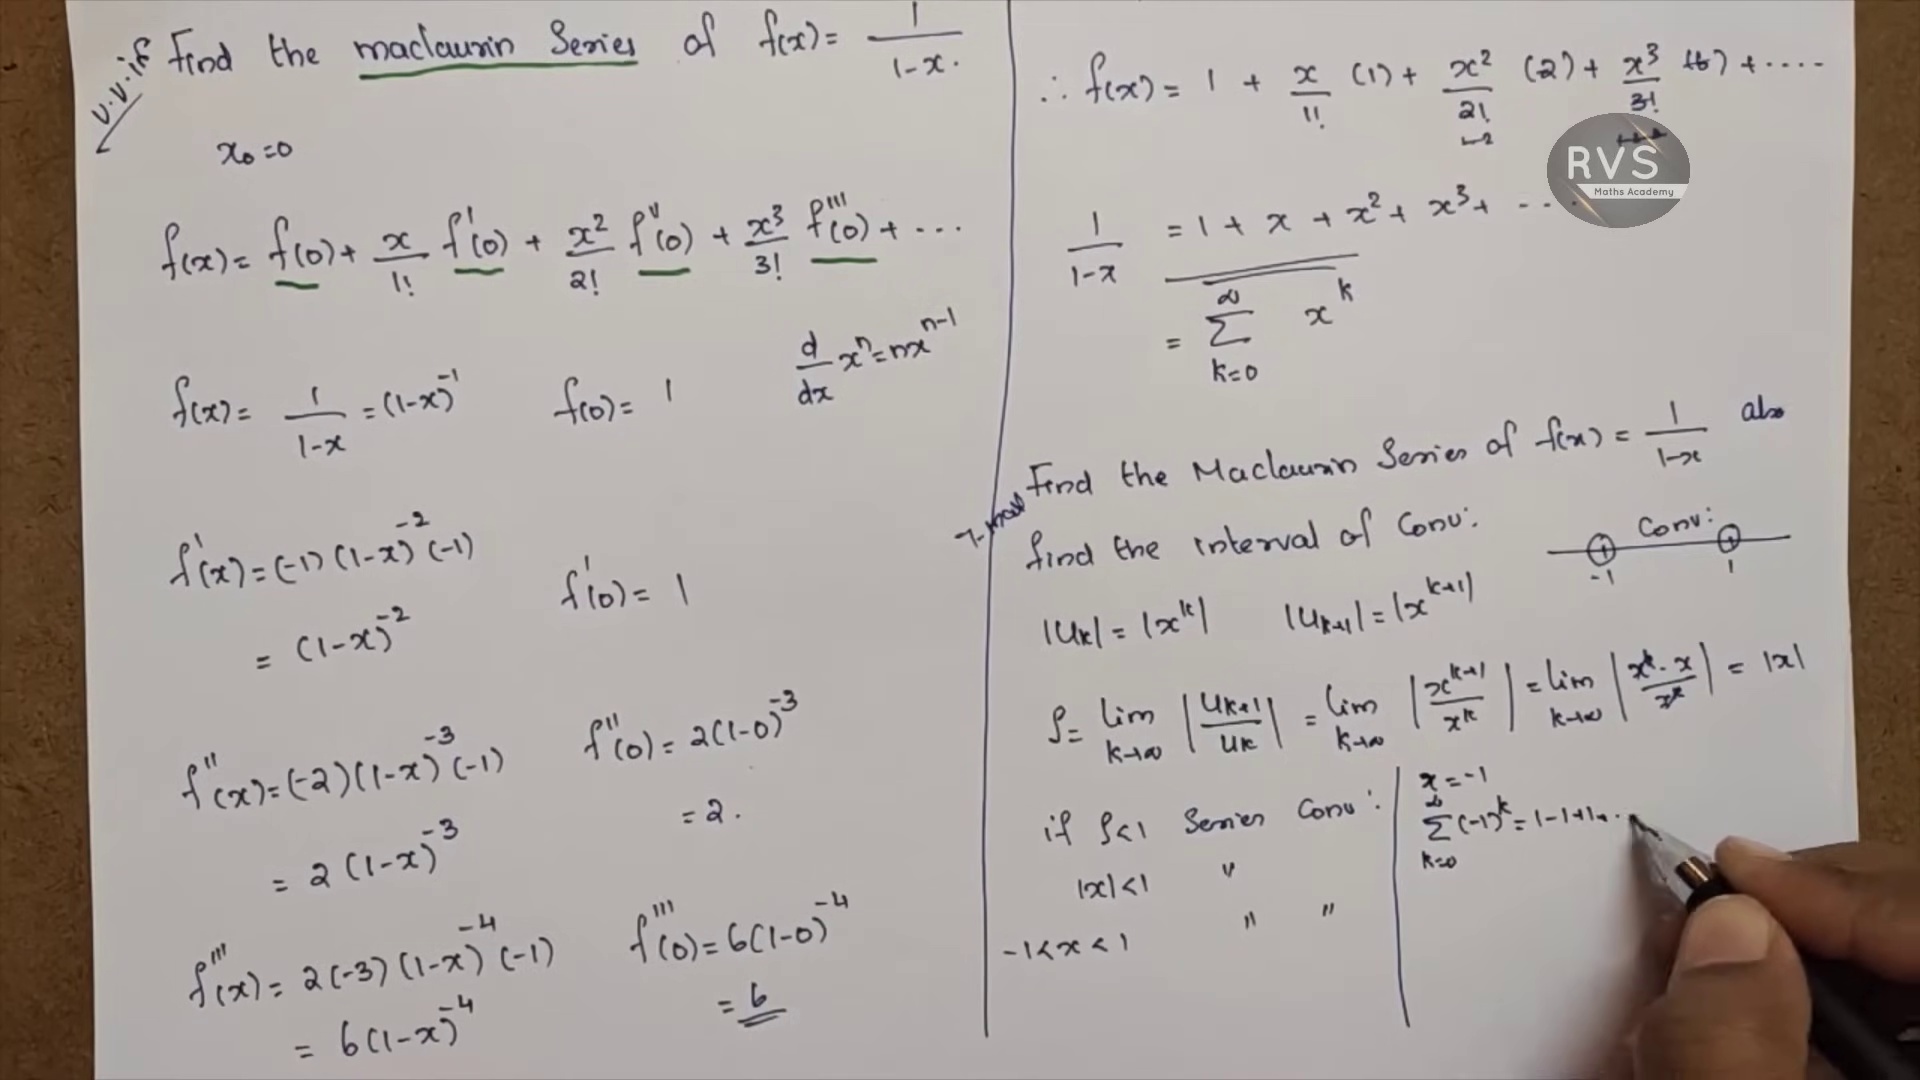 v.v.if
Find the maclaurin Series of f(x) = 1/1-x.
x₀=0
f(x) = f(0) + x/1! f'(0) + x²/2! f''(0) + x³/3! f'''(0) + ...
f(x) = 1/1-x = (1-x)⁻¹ f(0) = 1 d/dx xⁿ = nxⁿ⁻¹
f'(x) = (-1)(1-x)⁻²(-1) f'(0) = 1
= (1-x)⁻²
f''(x) = (-2)(1-x)⁻³(-1) f''(0) = 2(1-0)⁻³
= 2(1-x)⁻³ = 2.
f'''(x) = 2(-3)(1-x)⁻⁴(-1) f'''(0) = 6(1-0)⁻⁴
= 6(1-x)⁻⁴ = 6
∴ f(x) = 1 + x/1! (1) + x²/2! (2) + x³/3! (6) + ....
RVS
Maths Academy
1/1-x = 1 + x + x² + x³ + ...
= ∑ k=0 ∞ xᵏ
Find the Maclaurin Series of f(x) = 1/1-x also
find the interval of Conv:
Conv:
-1 1
|Uk| = |xᵏ| |Uk+1| = |xᵏ⁺¹|
ρ = lim k→∞ |Uk+1/Uk| = lim k→∞ |xᵏ⁺¹/xᵏ| = lim k→∞ |xᵏ.x/xᵏ| = |x|
if ρ<1 Series Conv:
|x|<1 "
-1<x<1 " "
x = -1
∑ k=0 ∞ (-1)ᵏ = 1-1+1...